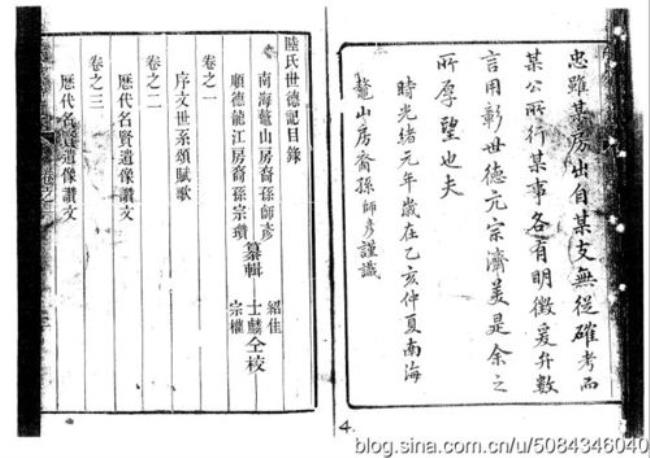 忠雖某房出自某支無從確考而
某公所行某事各有明徵爰弁數
言用彰世德元宗濟美是余之
所厚望也夫
時光緒元年歲在乙亥仲夏南海
鼇山房裔孫師彥謹識
陸氏世德記目錄
南海鼇山房裔孫師彥
順德龍江房裔孫宗瓚
纂輯
紹佳
士麟
宗權
仝校
卷之一
序文世系頌賦歌
卷之二
歷代名賢遺像讚文
卷之三
歷代名賢遺像讚文
卷之
4.
blog.sina.com.cn/u/5084346040